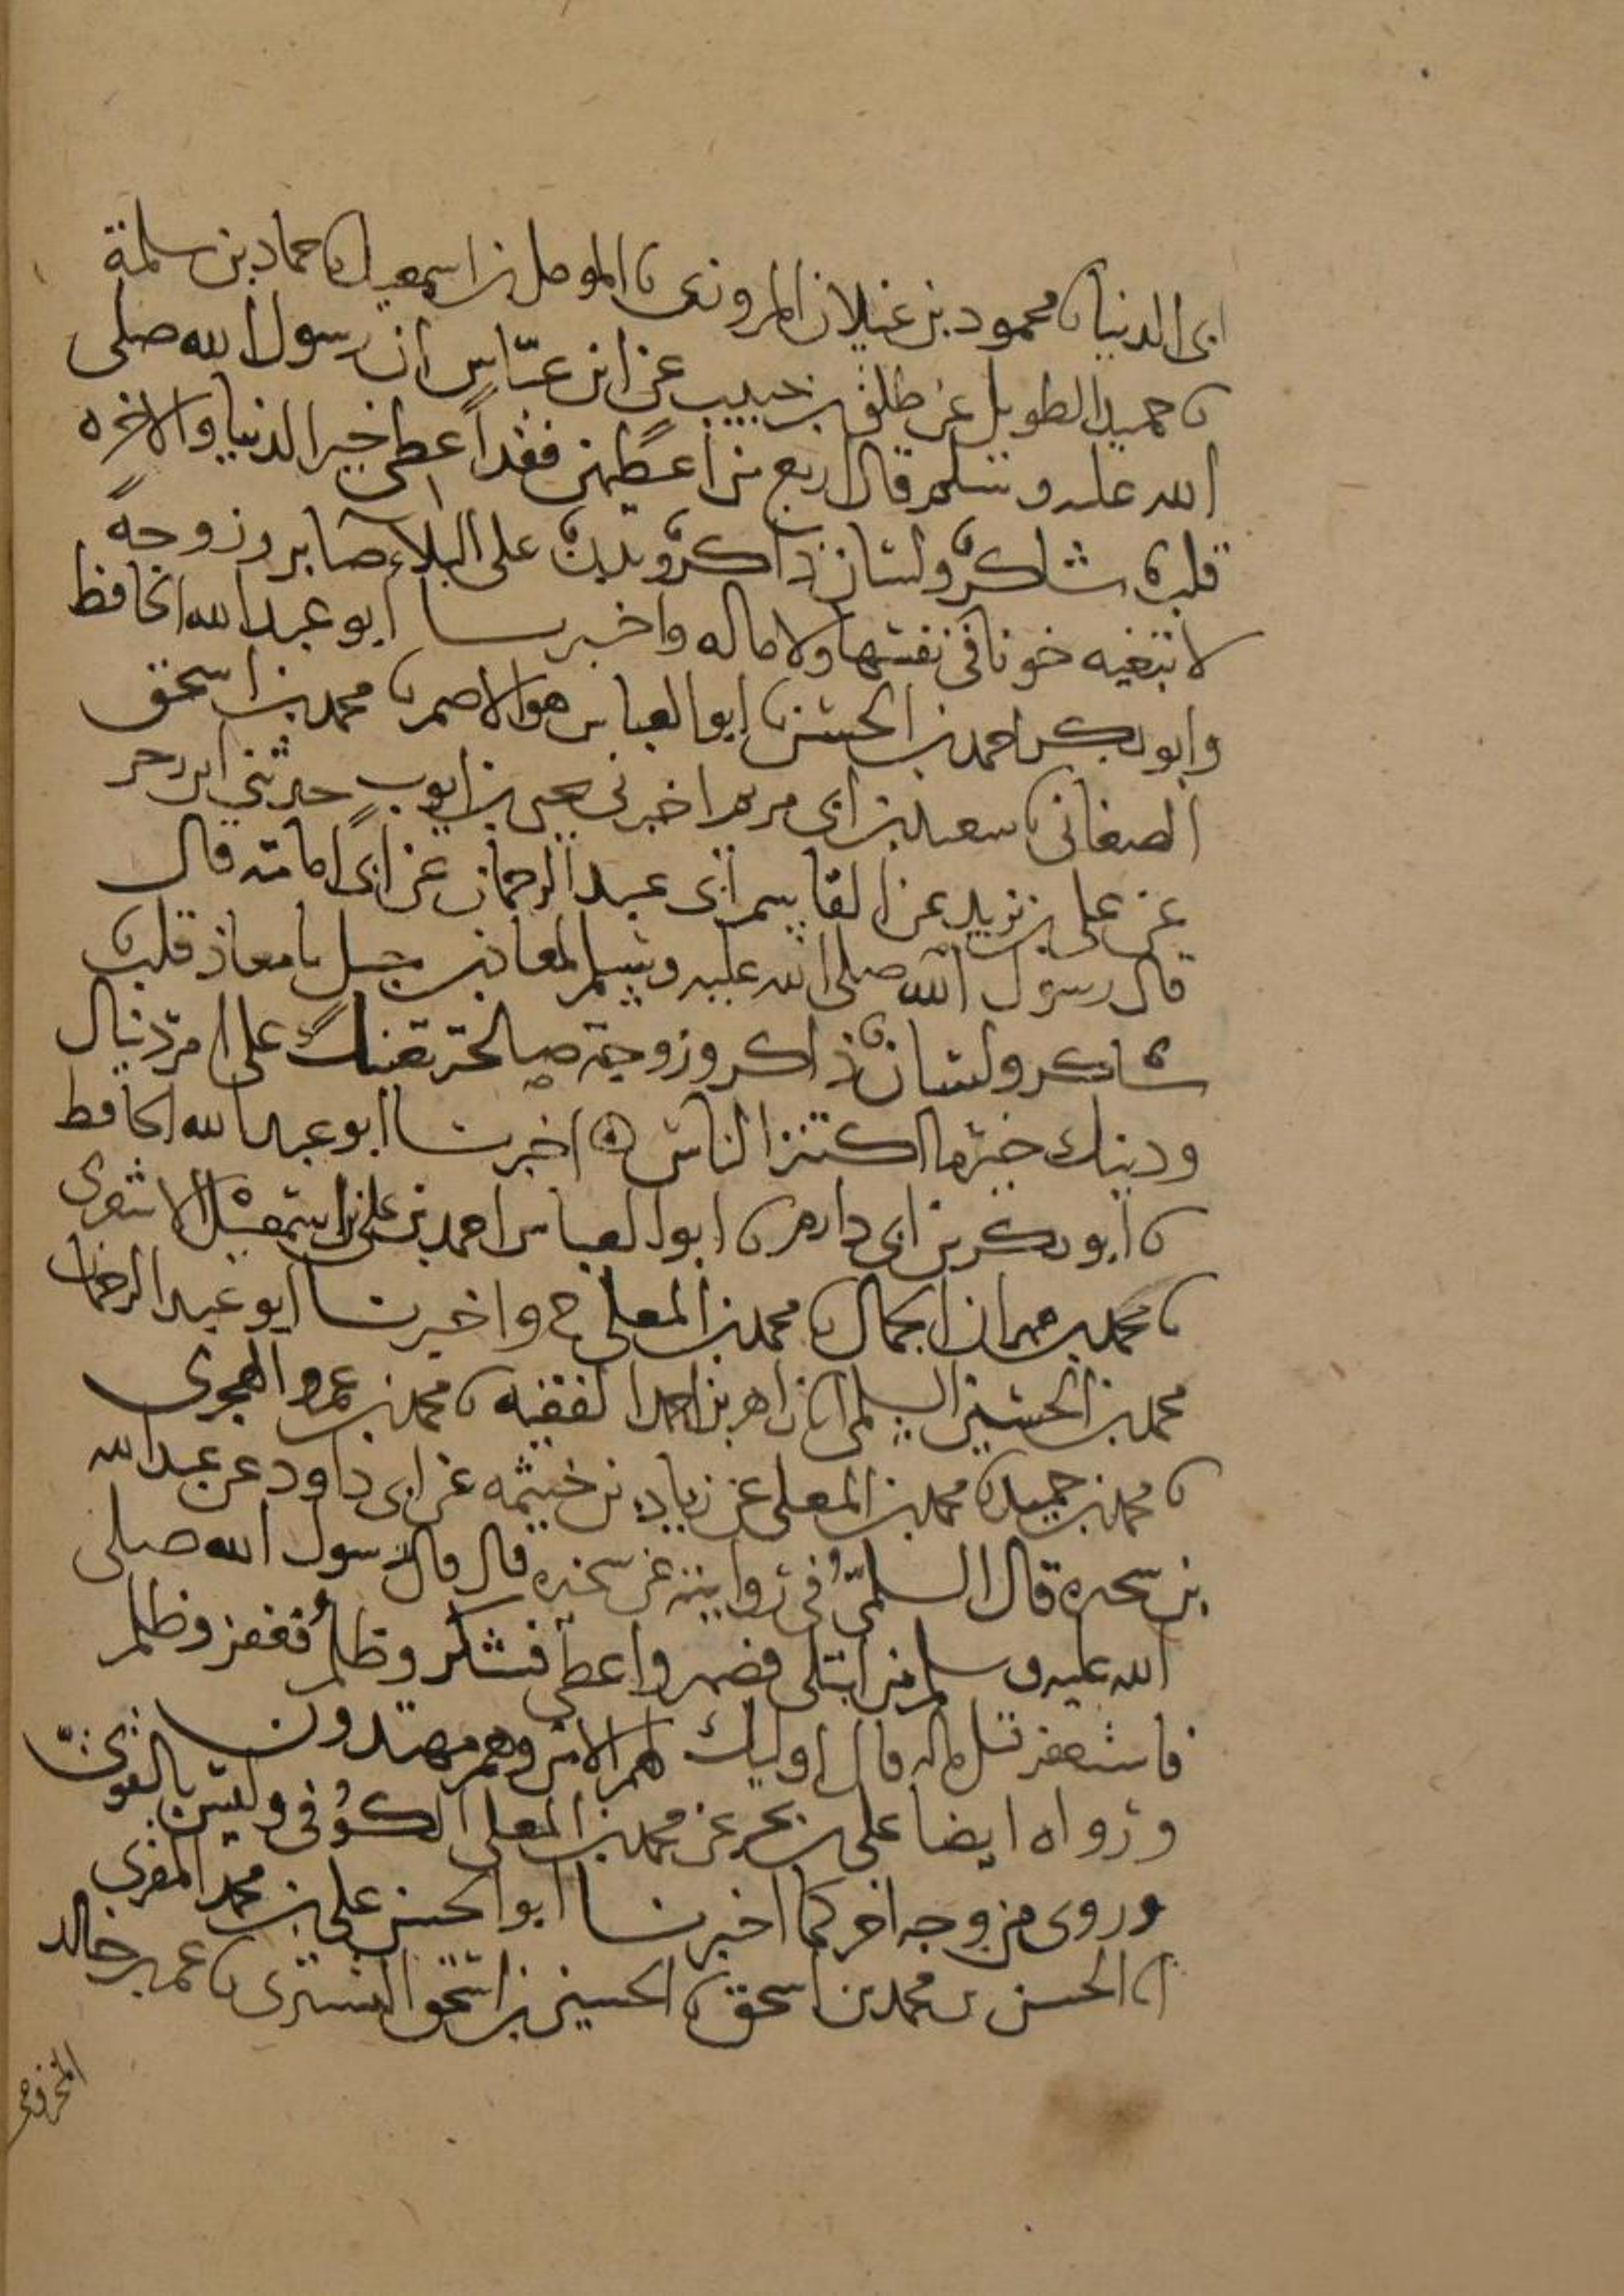 ابى الدنيا نا محمود بن غيلان المروزى نا المومل بن اسمعيل نا حماد بن سلمة
نا حميد الطويل عن طلق بن حبيب عن ابن عبّاس ان رسول الله صلى
الله عليه وسلم قال اربع من اعطيهن فقد اعطى خير الدنيا والاخره
قلب شاكر ولسان ذاكر وبدن على البلاء صابر وزوجة
لا تبغيه خونا فى نفسها ولا ماله واخبرنا ابو عبد الله الحافظ
وابو بكر احمد بن الحسن نا ابو العباس هو الاصم نا محمد بن اسحق
الصغانى نا سعيد بن ابى مريم اخبرنى يحيى بن ايوب حدثنى ابن زحر
عن على بن يزيد عن القاسم ابى عبد الرحمان عن ابى امامة قال
قال رسول الله صلى الله عليه وسلم لمعاذ بن جبل يا معاذ قلب
شاكر ولسان ذاكر وزوجة صالحة تعينك على امر دنياك
ودينك خير ما اكتنز الناس اخبرنا ابو عبد الله الحافظ
نا ابو بكر بن ابى دارم نا ابو العباس احمد بن على بن اسمعيل الاشعرى
نا محمد بن مهران الجمال نا محمد بن المعلى ح واخبرنا ابو عبد الرحمان
محمد بن الحسين السلمى انا زاهر بن احمد الفقيه نا محمد بن عمرو الهجرى
نا محمد بن حميد نا محمد بن المعلى عن زياد بن خيثمه عن ابى داود عن عبد الله
بن سخبره قال السلمىّ فى روايته عن سخبره قال قال رسول الله صلى
الله عليه وسلم من ابتلى فصبر واعطى فشكر وظلم فغفر وظلم
فاستغفر قيل ماله قال اوليك لهم الامن وهم مهتدون
ورواه ايضا على بن بحر عن محمد بن المعلى الكوفى وليس بالقوىّ
وروى من وجه اخر كما اخبرنا ابو الحسن على بن محمد المقرى
انا الحسن بن محمد بن اسحق نا الحسين بن اسحق التسترى نا عمر بن خالد
المخزومى